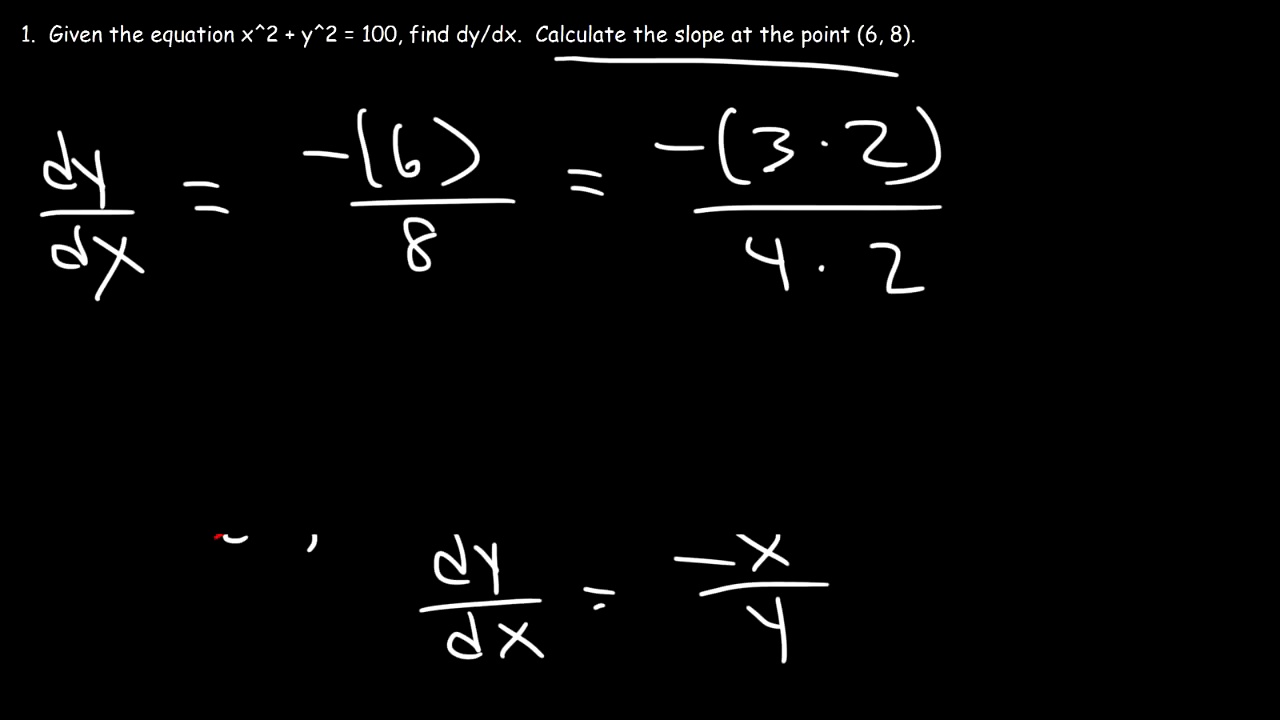 1. Given the equation x^2 + y^2 = 100, find dy/dx. Calculate the slope at the point (6, 8).
dy/dx = -(6)/8 = -(3 · 2)/4 · 2
dy/dx = -x/y